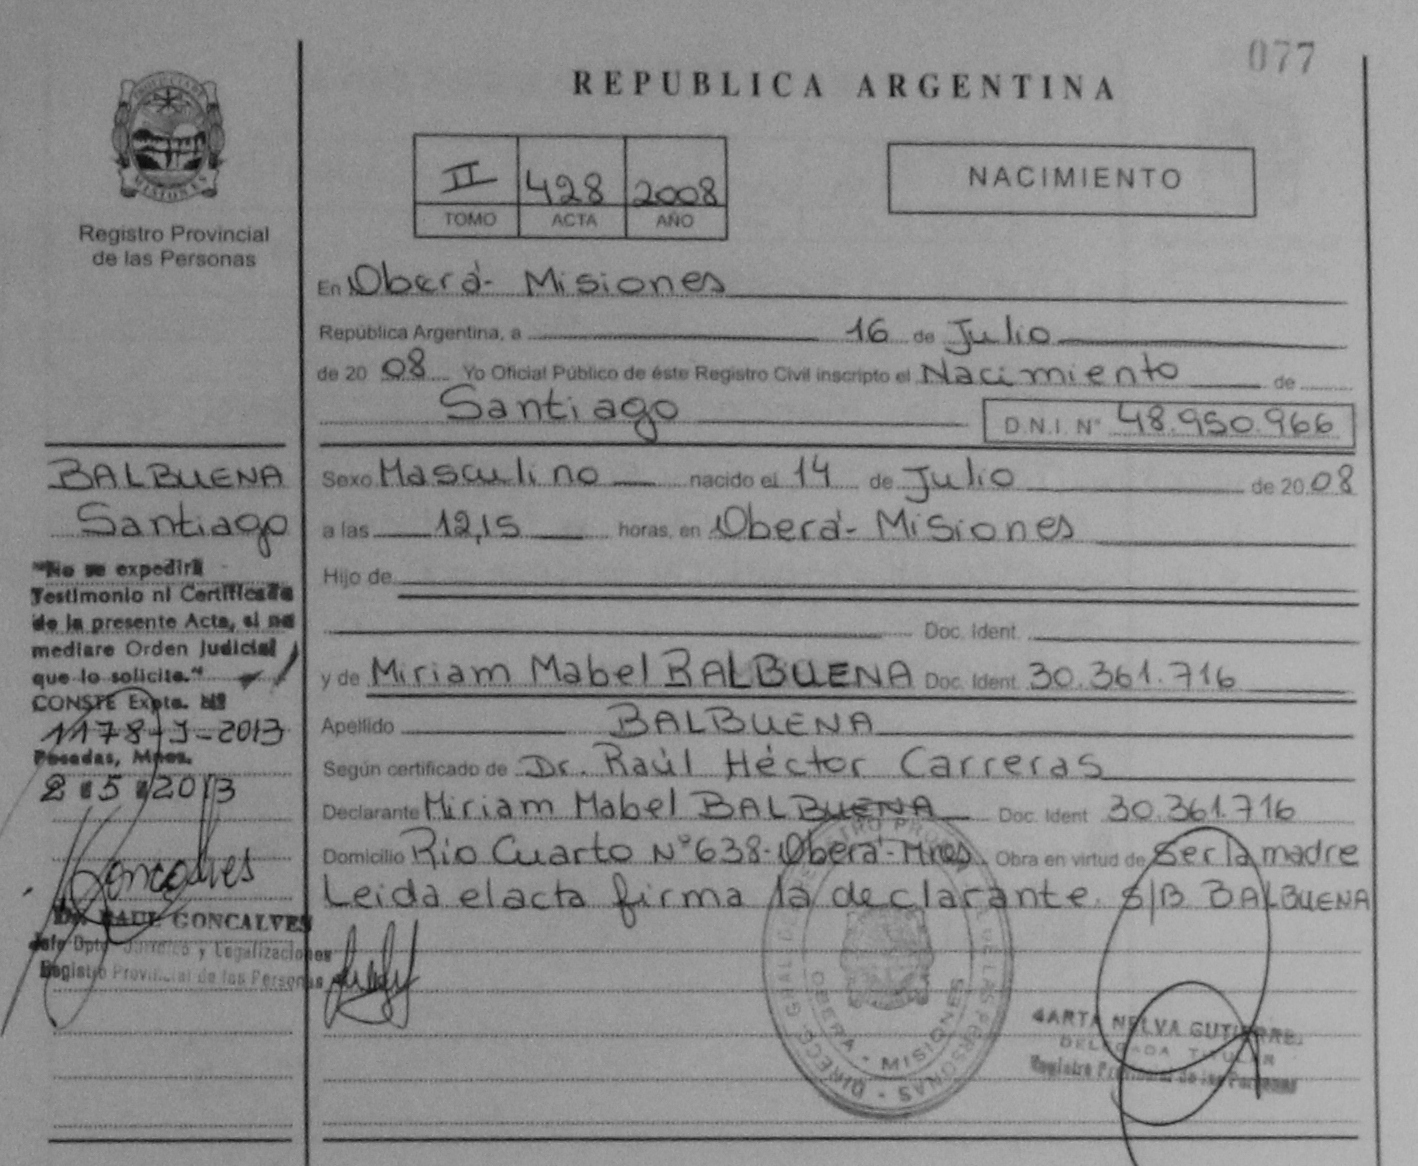 077
REPUBLICA ARGENTINA
PROVINCIA DE
MISIONES
Registro Provincial
de las Personas
II 428 2008
TOMO ACTA AÑO
NACIMIENTO
En Oberá - Misiones
República Argentina, a 16 de Julio
de 20 08 Yo Oficial Público de éste Registro Civil inscripto el Nacimiento de
Santiago D.N.I. N° 48.950.966
BALBUENA
Santiago
"No se expedirá
Testimonio ni Certificado
de la presente Acta, si no
mediare Orden Judicial
que lo solicite."
CONSTE Expte. Nº
1178-J-2013
Posadas, Mnes.
2 5 2013
Goncalves
Dr. RAUL GONCALVES
Jefe Dpto. Jurídico y Legalizaciones
Registro Provincial de las Personas
Sexo Masculino nacido el 14 de Julio de 20 08
a las 12,15 horas, en Oberá - Misiones
Hijo de
Doc. Ident.
y de Miriam Mabel BALBUENA Doc. Ident. 30.361.716
Apellido BALBUENA
Según certificado de Dr. Raúl Héctor Carreras
Declarante Miriam Mabel BALBUENA Doc. Ident 30.361.716
Domicilio Rio Cuarto N°638-Oberá-Mnes. Obra en virtud de Ser la madre
Leida el acta firma la declarante. S/B BALBUENA
OBERA - MISIONES
NELVA
DELEGADA TITULAR
Registro Provincial de las Personas